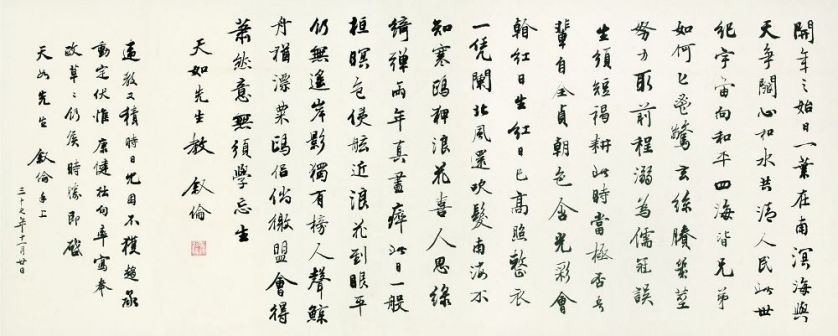 開年之始日一葉在南溟海與
天爭闊心如水共清人民此世
紀宇宙向和平四海皆兄弟
如何匕鬯驚玄絲賸
努力取前程溺為儒冠誤
生須短褐耕此時當極否吾
輩自全貞朝色含光彩會
紅日生紅日已高照整衣
一凭闌北風還吹髮南海不
知寒鷗狎浪花喜人思綠
綺彈兩年真盡瘁此日一般
桓暝色侵舷近浪花到眼平
仍無遙岸影獨有榜人聲鯨
舟猶漂粟鷗侶倘徵盟會得
蕭然意無須學忘生
天如先生教 叙倫
違教又積時日因不穫趨承
動定伏惟康健拙句率寫奉
改草〻仍候時勝即
天如先生 叙倫手上
三十七年十二月廿日